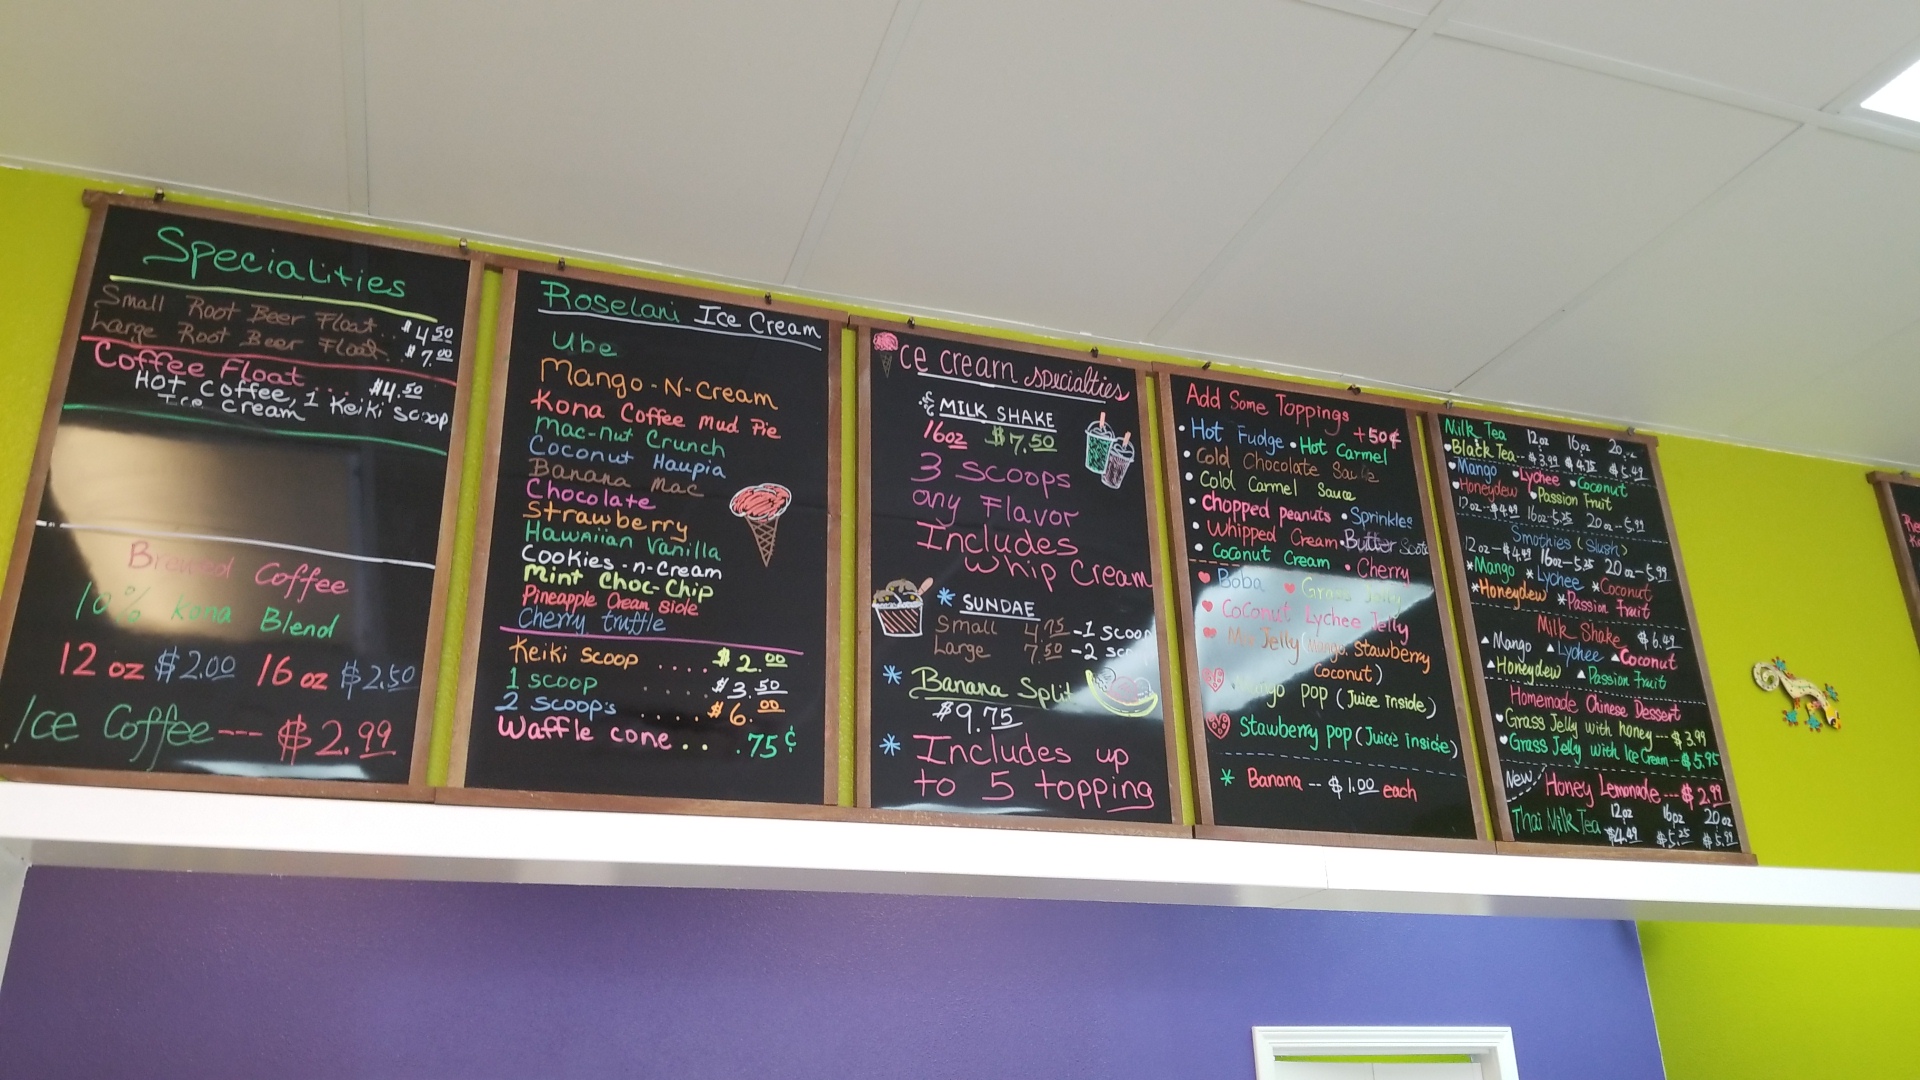 Specialities
Small Root Beer Float.. $4.50
Large Root Beer Float $7.00
Coffee Float ... $4.50
Hot Coffee, 1 Keiki scoop
Ice Cream
Brewed Coffee
10% Kona Blend
12 oz $2.00 16 oz $2.50
Ice Coffee --- $2.99
Roselani Ice Cream
Ube
Mango-N-Cream
Kona Coffee Mud Pie
Mac-nut Crunch
Coconut Haupia
Banana Mac
Chocolate
Strawberry
Hawaiian Vanilla
Cookies-n-Cream
Mint Choc-Chip
Pineapple Cream side
Cherry truffle
Keiki scoop .... $2.00
1 scoop .... $3.50
2 scoop's .... $6.00
Waffle cone .. .75¢
ce cream specialties
MILK SHAKE
16oz $7.50
3 scoops
any Flavor
Includes
whip Cream
* SUNDAE
Small 4.75 -1 scoop
Large 7.50 -2
* Banana Split
$9.75
* Includes up
to 5 topping
Add Some Toppings
+50¢
• Hot Fudge • Hot Carmel
• Cold Chocolate
• Cold Carmel Sauce
• chopped peanuts • Sprinkles
• Whipped Cream • Butter
• Coconut Cream • Cherry
Boba Grass Jelly
Coconut Lychee Jelly
Mix Jelly (Mango. Stawberry
Coconut)
Mango pop (Juice inside)
Stawberry pop (Juice inside)
* Banana -- $1.00 each
Milk Tea 12oz 16oz
Black Tea -- $3.99 $4.75 $5.49
Mango Lychee Coconut
Honeydew Passion Fruit
12oz-$4.49 16oz-5.25 20oz-5.99
Smothies (slush)
12oz-$4.49 16oz-5.25 20oz-5.99
*Mango *Lychee *Coconut
*Honeydew *Passion fruit
Milk Shake $6.49
Mango Lychee Coconut
Honeydew Passion fruit
Homemade Chinese Dessert
Grass Jelly with honey --- $3.99
Grass Jelly with Ice Cream -- $5.95
New! Honey Lemonade --- $2.99
Thai Milk Tea 12oz 16oz 20oz
$4.49 $5.25 $5.99